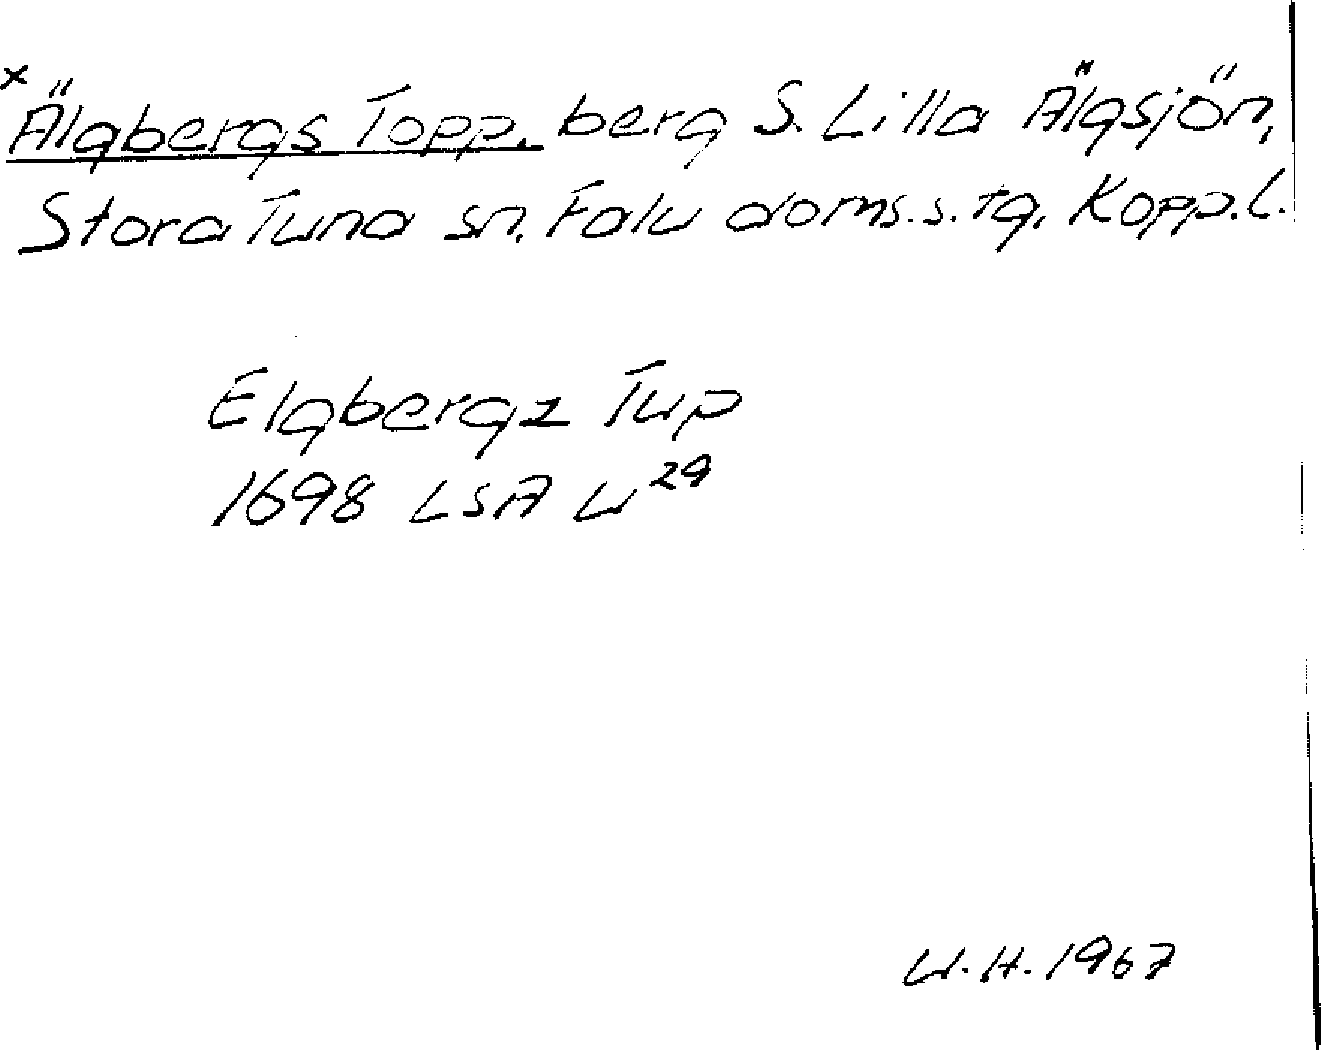 x Älgbergs Topp. berg S. Lilla Älgsjön,
Stora Tuna sn. Falu doms.s. tg. Kopp. l.
Elgbergz Tup
1698 LSA W 29
W.H. 1967